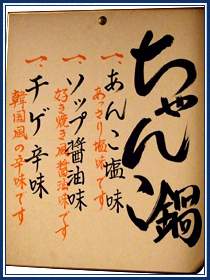 ちゃんこ鍋
一、あんこ塩味
あっさり塩味です
一、ソップ醤油味
好き焼き風醤油味です
一、チゲ辛味
韓国風の辛味です